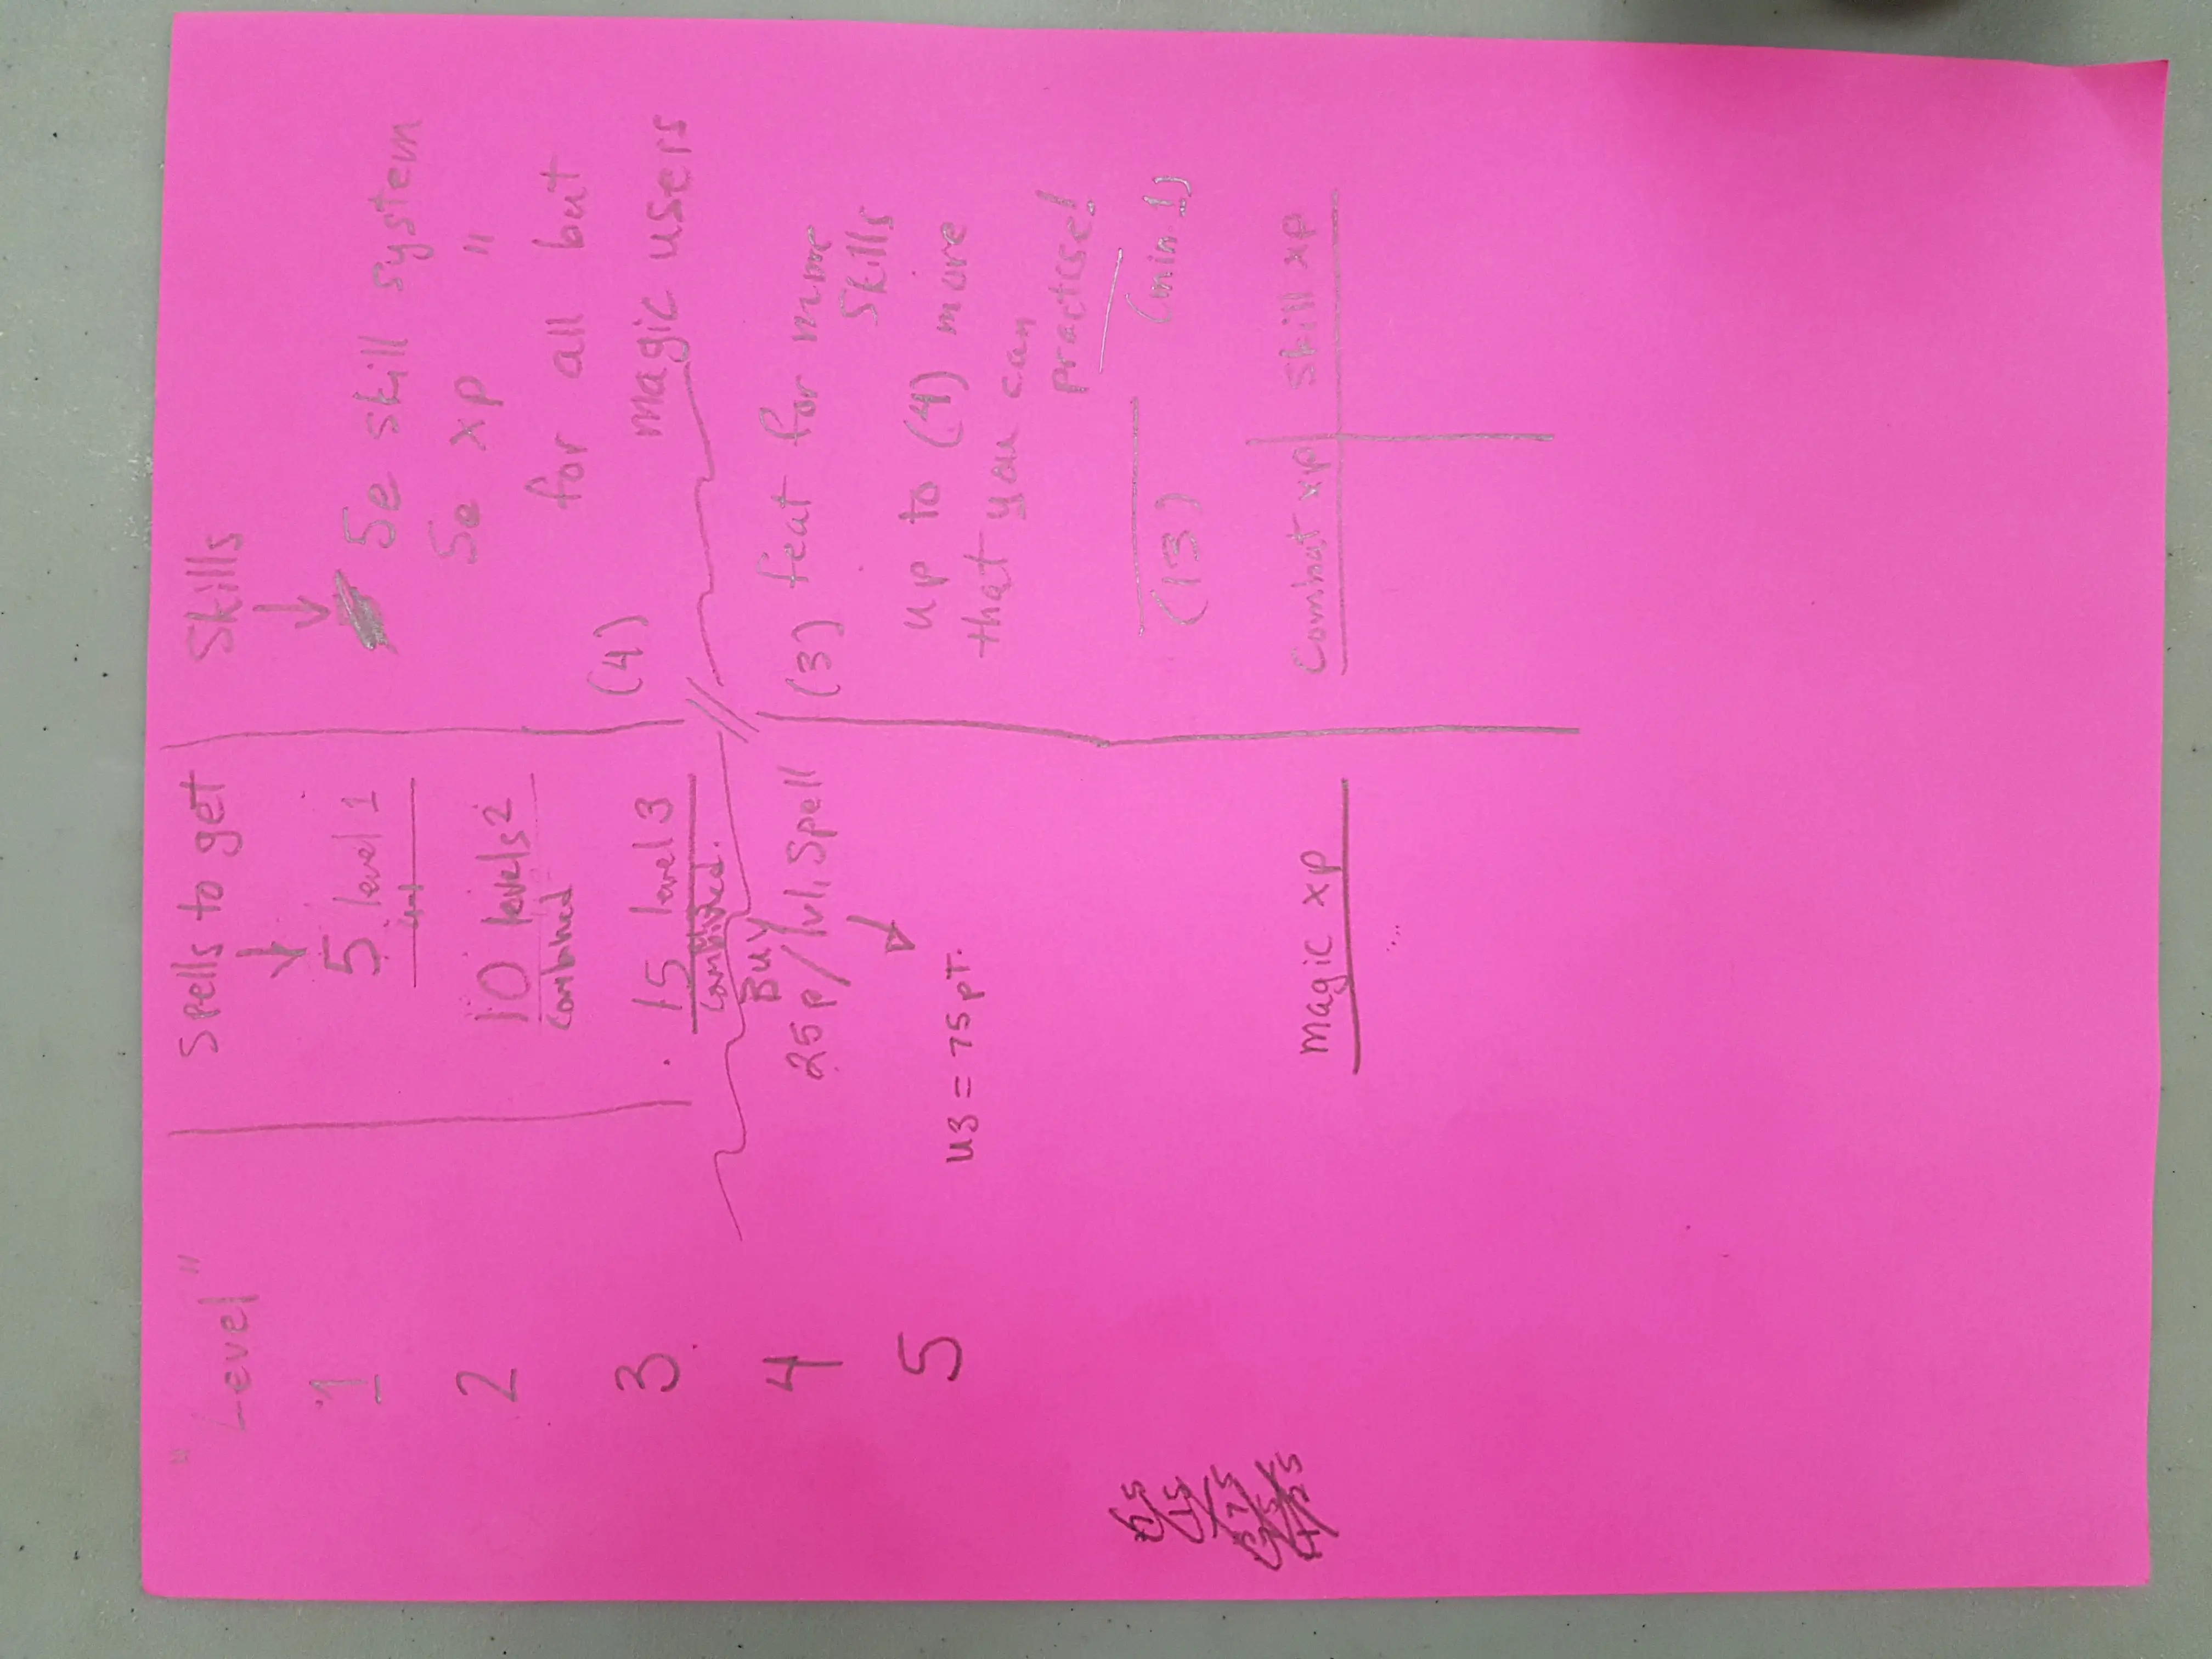 "Level"
1
2
3
4
5
Spells to get
5 level 1
10 levels 2
combined
15 level 3
combined.
Buy
25p/lvl. Spell
= 75 pt.
Skills
5e skill system
5e xp "
for all but
(4) magic users
(3) feat for more
skills
up to (4) more
that you can
practise!
(13) (min 1)
magic xp
Combat xp skill xp